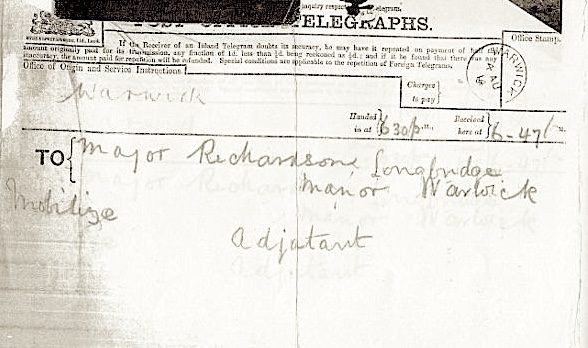 inquiry respect
Telegram.
POST OFFICE TELEGRAPHS.
If the Receiver of an Inland Telegram doubts its accuracy, he may have it repeated on payment of half the
amount originally paid for its transmission, any fraction of 1d. less than ½d. being reckoned as ½d.; and if it be found that there was any
inaccuracy, the amount paid for repetition will be refunded. Special conditions are applicable to the repetition of Foreign Telegrams.
Office Stamp.
WARWICK
4 AU
Office of Origin and Service Instructions
Charges
to pay
Warwick
Handed
in at
6 30 p.m.,
Received
here at
6-47
TO
Major Richardson, Longbridge
Manor Warwick
Mobilize
Adjatant